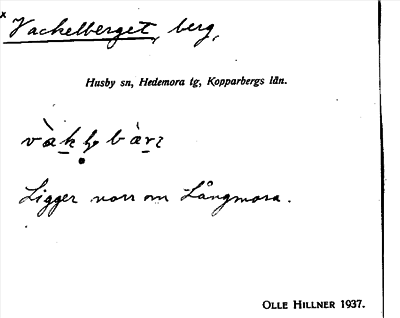 Vackelberget, berg,
Husby sn, Hedemora tg, Kopparbergs län.
Ligger norr om Långmora.
OLLE HILLNER 1937.